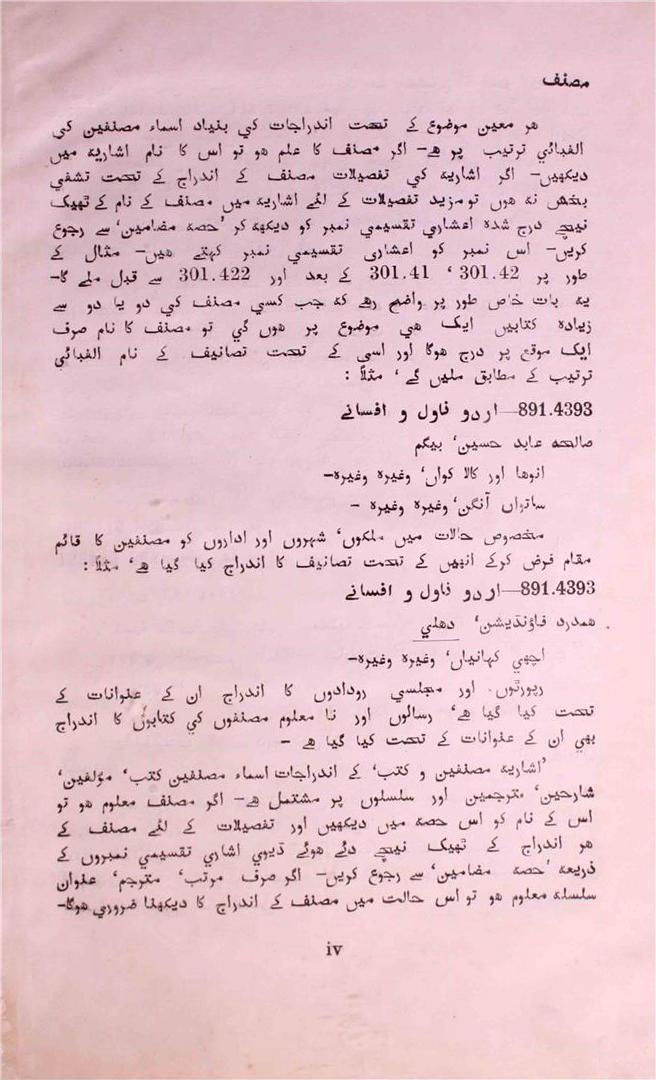 مصنف
هر معین موضوع کے تحت اندراجات کي بنیاد اسماء مصنفین کي
الفبائي ترتیب پر هے۔ اگر مصنف کا علم هو تو اس کا نام اشاریه میں
دیکھیں۔ اگر اشاریه کي تفصیلات مصنف کے اندراج کے تحت تشفي
بخش نه هوں تو مزید تفصیلات کے لئے اشاریه میں مصنف کے نام کے ٹھیک
نیچے درج شده اعشاري تقسیمي نمبر کو دیکھه کر ’حصه مضامین‘ سے رجوع
کریں۔ اس نمبر کو اعشاری تقسیمي نمبر کہتے هیں۔ مثال کے
طور پر 301.42 ‘ 301.41 کے بعد اور 301.422 سے قبل ملے گا۔
یه بات خاص طور پر واضح رهے که جب کسي مصنف کي دو یا دو سے
زیاده کتابیں ایک هي موضوع پر هوں گي تو مصنف کا نام صرف
ایک موقع پر درج هوگا اور اسی کے تحت تصانیف کے نام الفبائي
ترتیب کے مطابق ملیں گے ‘ مثلاً :
891.4393—اردو ناول و افسانے
صالحه عابد حسین‘ بیگم
انوها اور کالا کواں‘ وغیره وغیره۔
ساتواں آنگن‘ وغیره وغیره ۔
مخصوص حالات میں ملکوں‘ شہروں اور اداروں کو مصنفین کا قائم
مقام فرض کرکے انہیں کے تحت تصانیف کا اندراج کیا گیا هے‘ مثلاً :
891.4393—اردو ناول و افسانے
همدرد فاؤنڈیشن‘ دهلي
اچھي کہانیاں‘ وغیره وغیره۔
رپورٹوں اور مجلسي رودادوں کا اندراج ان کے عنوانات کے
تحت کیا گیا هے‘ رسالوں اور نا معلوم مصنفوں کي کتابوں کا اندراج
بھي ان کے عنوانات کے تحت کیا گیا هے ۔
’اشاریه مصنفین و کتب‘ کے اندراجات اسماء مصنفین کتب‘ مؤلفین‘
شارحین‘ مترجمین اور سلسلوں پر مشتمل هے۔ اگر مصنف معلوم هو تو
اس کے نام کو اس حصه میں دیکھیں اور تفصیلات کے لئے مصنف کے
هر اندراج کے ٹھیک نیچے دئے هوئے ڈیوي اشاري تقسیمي نمبروں کے
ذریعه ’حصه مضامین‘ سے رجوع کریں۔ اگر صرف مرتب‘ مترجم‘ عنوان
سلسله معلوم هو تو اس حالت میں مصنف کے اندراج کا دیکھنا ضروري هوگا۔
iv